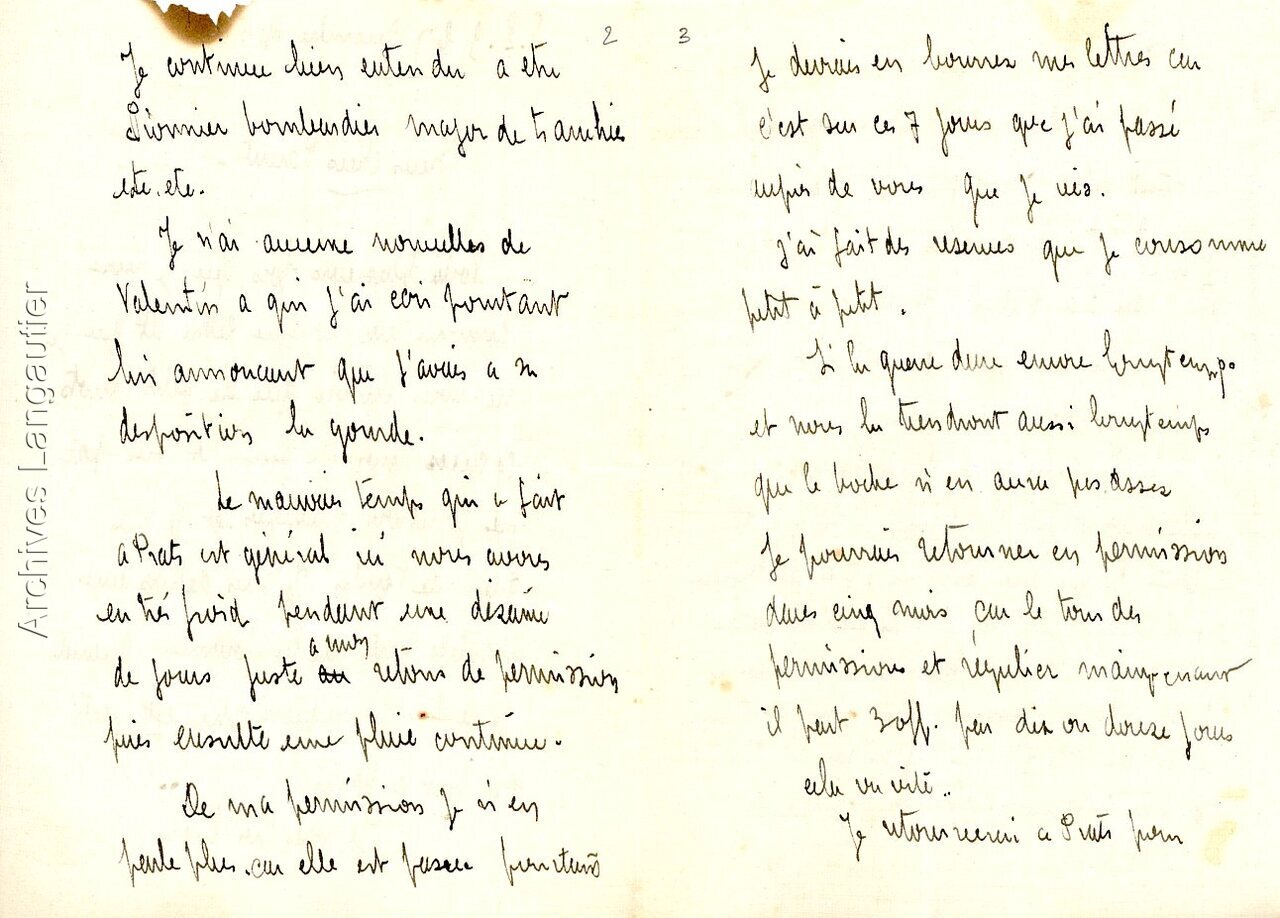 2
Je continue bien entendu a etre
Pionnier bombardier major de tranchée
etc. etc.
Je n'ai aucune nouvelles de
Valentin a qui j'ai ecri pourtant
lui annoncant que j'avais a sa
desposition la gourde.
Le mauvais temps qui a fait
a Prats est général ici nous avons
eu trés froid pendant une dezaine
de jours juste a mon retour de permission
puis ensuite une pluie continue.
De ma permission je n'en
parle plus. car elle est passee pourtant
3
Je devrais en bourrer mes lettres car
c'est sur ces 7 jours que j'ai passé
aupres de vous que je vis.
j'ai fait des reserves que je consomme
petit à petit.
Si la guerre dure encore longtemps
et nous la tiendront aussi longtemps
que le boche n'en aura pas assez
Je pourrais retourner en permission
dans cinq mois car le tour des
permissions et régulier maintenant
il part 3 off. par dix ou douze jours
cela va vite..
Je retournerai a Prats pour
Archives Langautier